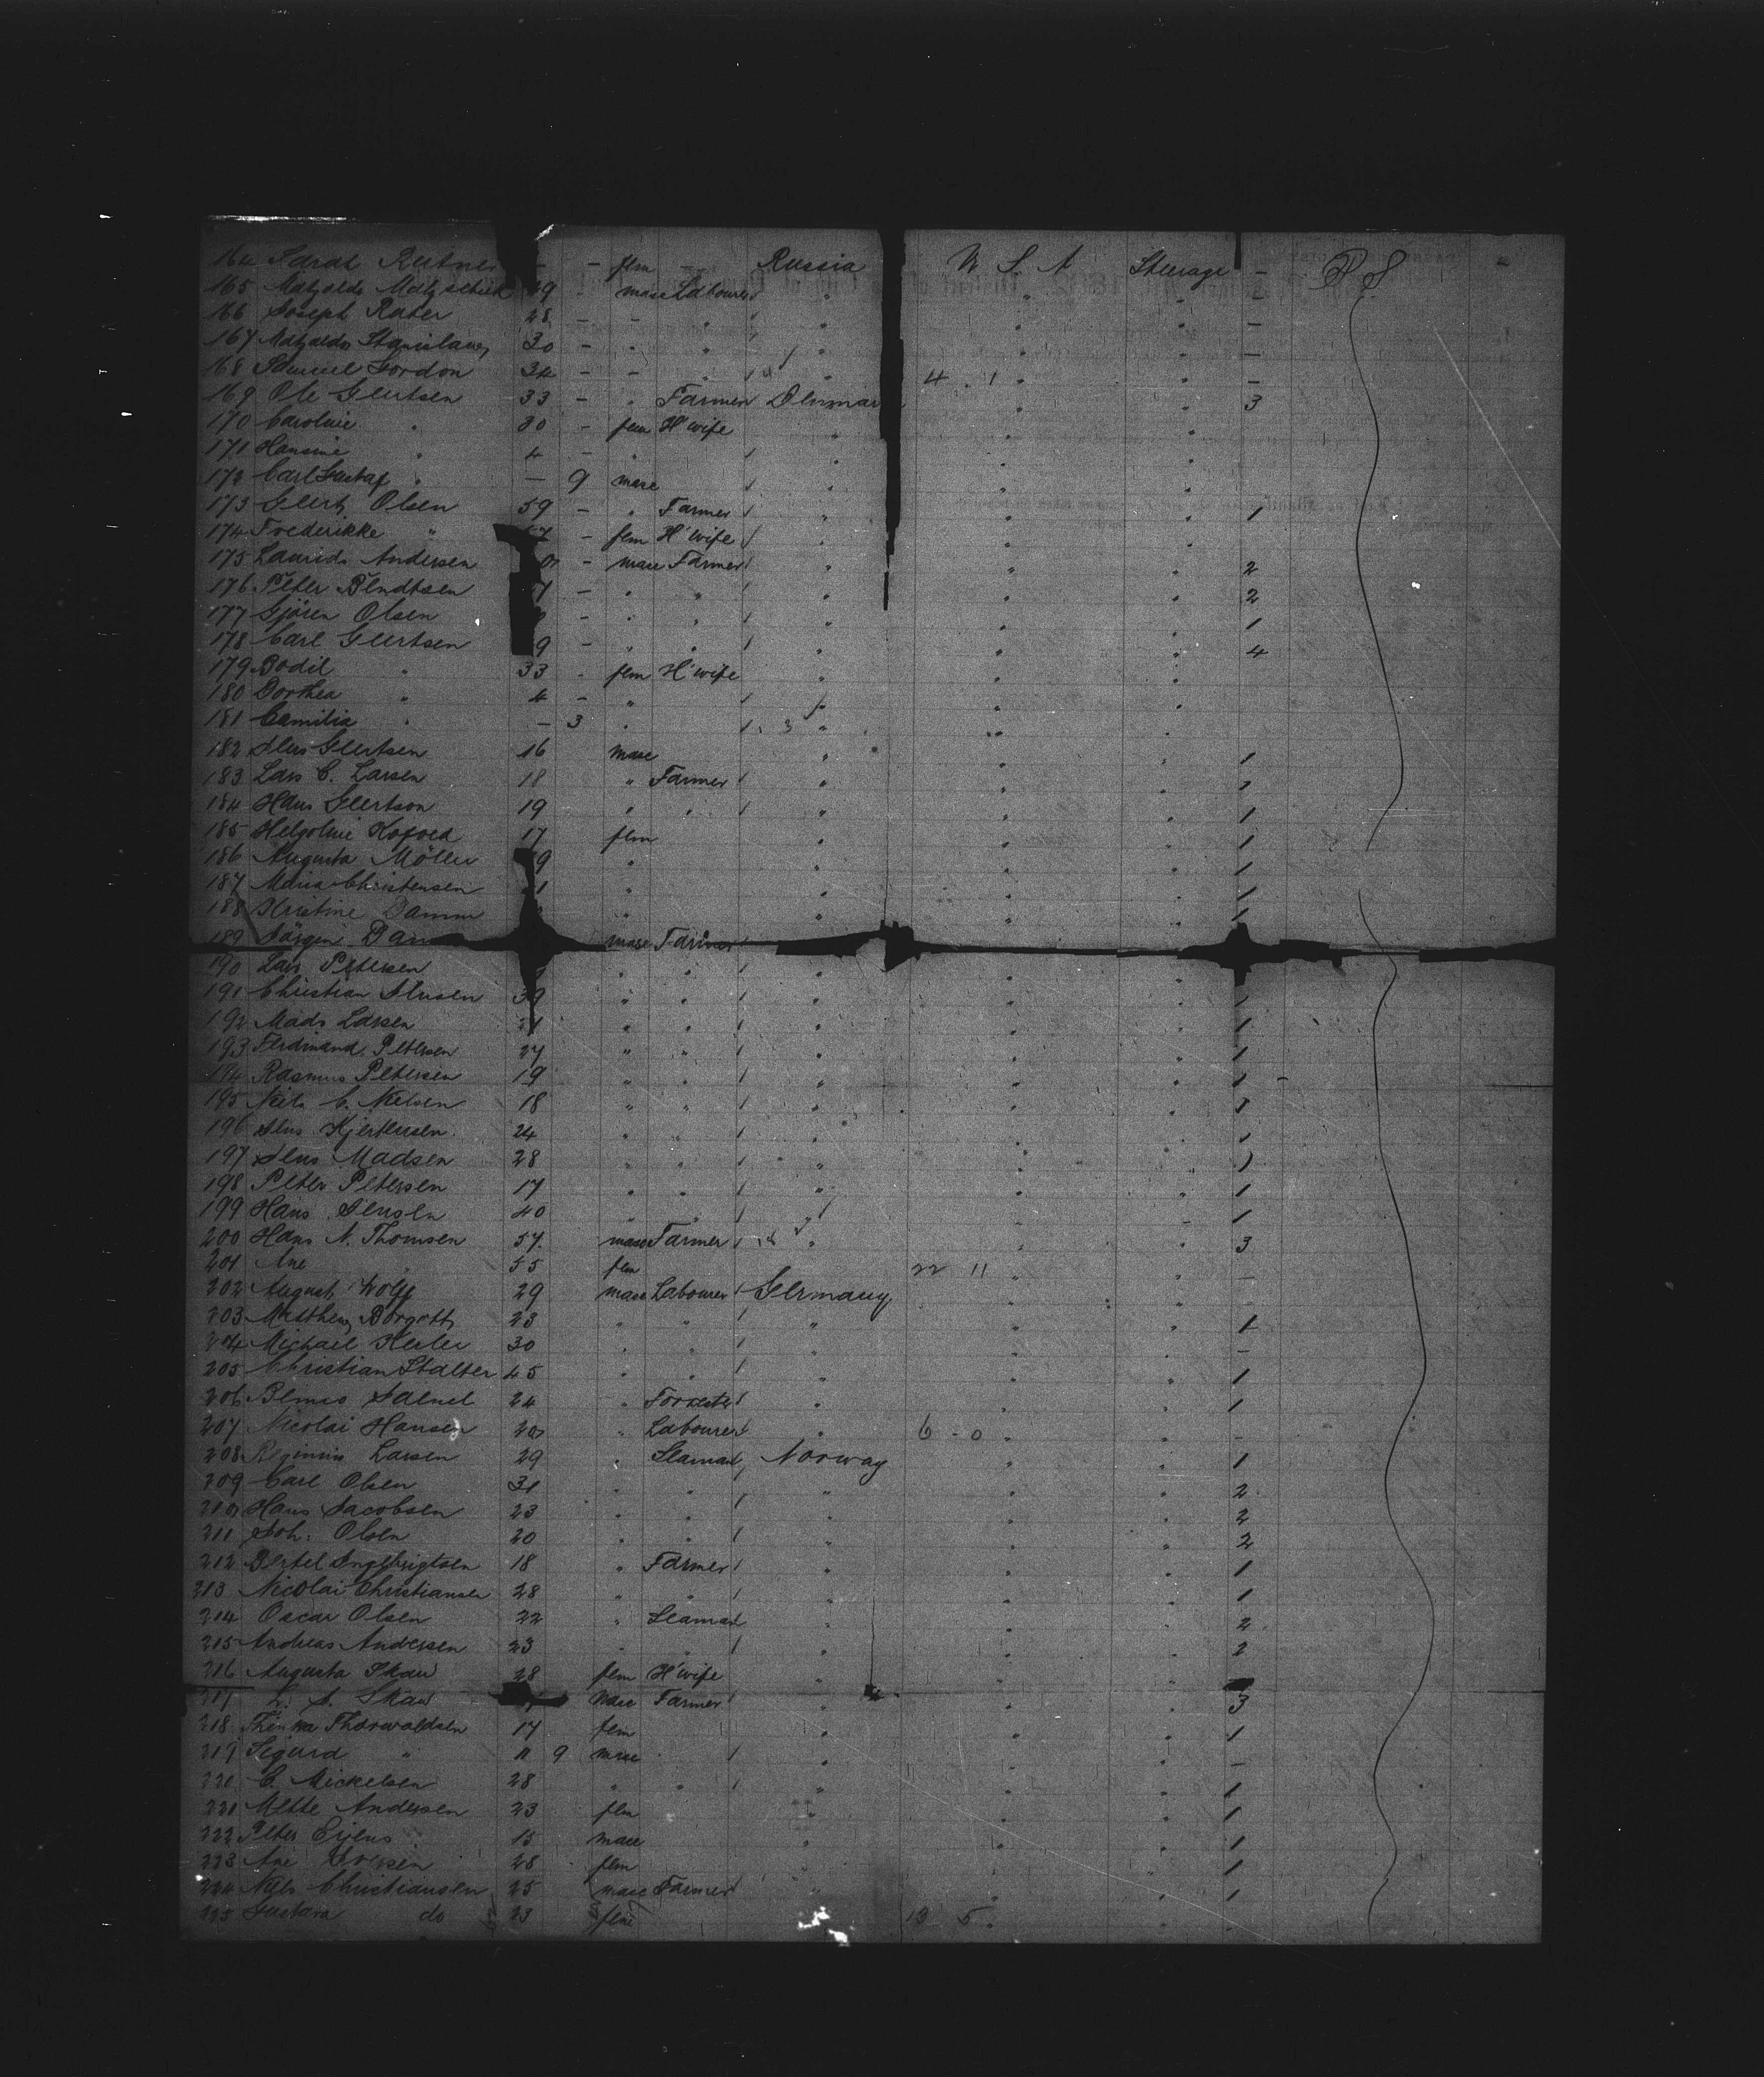 164 Sarah - - fem - Russia U S A Steerage - P S
165 9 - masc Labourer " " " -
166 Joseph Rater 28 - - " " " " -
167 30 - " " " " " -
168 Samuel Gordon 34 - - " " 4 . 1 " " -
169 Ole Geertsen 33 - " Farmer Denmar " " 3
170 Caroline " 30 - fem H'wife " " "
171 Hansine " 4 - " " " "
172 Carl Gustaf " - 9 masc " " "
173 Geert Olsen 59 - " Farmer " " " 1
174 Frederikke " 7 - fem H'wife " " "
175 Laurids Andersen - masc Farmer " " " 2
176 Peter Bendtsen 7 - " " " " " 2
177 Gjören Olsen - " " " " " 1
178 Carl Geertsen 9 - " " " " " 4
179 Bodil " 33 - fem H'wife " " "
180 Dorthea " 4 - " " " "
181 Camilia " - 3 " 3 " " "
182 Jens Geertsen 16 masc " " " 1
183 Lars C. Larsen 18 " Farmer " " " 1
184 Hans Geertson 19 " " " " " 1
185 Kofoed 17 fem " " " 1
186 Augusta Möller 9 " " " " 1
187 Maria Christensen 1 " " " " 1
188 Kristine Damm " " " " 1
189 Jörgen Dam masc Farmer
190 Lars Petersen " " " " "
191 Christian Jensen 39 " " " " " 1
192 Mads Larsen 21 " " " " " 1
193 Ferdinand Petersen 27 " " " " " 1
194 Rasmus Petersen 19 " " " " " 1 -
195 Niels C. Nielsen 18 " " " " " 1
196 Jens 24 " " " " " 1
197 Jens Madsen 28 " " " " " 1
198 Peter Petersen 17 " " " " " 1
199 Hans Jensen 40 " " " " " 1
200 Hans N. Thomsen 57 masc Farmer " " " 3
201 Ane 55 fem 22 11 " " -
202 August Wolff 29 masc Labourer Germany " " -
203 23 " " " " " 1
204 Michael 30 " " " " " -
205 Christian Stalter 45 " " " " " 1
206 24 " Forrester " " " 1
207 Nicolai Hansen 20 " Labourer " 6 - 0 " " -
208 Larsen 29 " Seaman Norway " " 1
209 Carl Olsen 31 " " " " " 2
210 Hans Jacobsen 23 " " " " " 2
211 Joh: Olsen 20 " " " " " 2
212 Bertel Ingebrigtsen 18 " Farmer " " " 1
213 Nicolai Christiansen 28 " " " " " 1
214 Oscar Olsen 22 " Seaman " " " 2
215 Andreas Andersen 23 " " " " " 2
216 Augusta Skau 28 fem H'wife " " "
217 Skau masc Farmer " " " 3
218 Thorwaldsen 17 fem " " " 1
219 Sigurd " 11 9 masc " " " -
220 C. Mickelsen 28 " " " " " 1
221 Mette Andersen 23 fem " " " 1
222 Peter 15 masc " " " 1
223 Ane 28 fem " " " 1
224 Niels Christiansen 25 masc Farmer " " " 1
225 Gustava do 23 fem 13 5 " " "